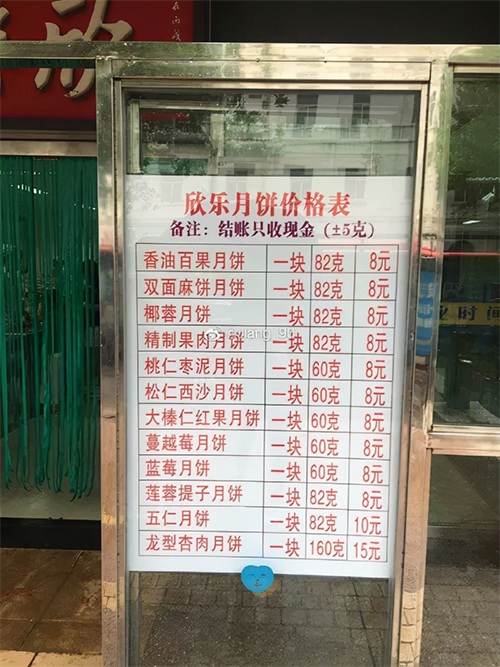 欣
欣乐月饼价格表
备注：结账只收现金（±5克）
香油百果月饼 一块 82克 8元
双面麻饼月饼 一块 82克 8元
椰蓉月饼 一块 82克 8元
精制果肉月饼 一块 82克 8元
桃仁枣泥月饼 一块 60克 8元
松仁西沙月饼 一块 60克 8元
大榛仁红果月饼 一块 60克 8元
蔓越莓月饼 一块 60克 8元
蓝莓月饼 一块 60克 8元
莲蓉提子月饼 一块 82克 8元
五仁月饼 一块 82克 10元
龙型杏肉月饼 一块 160克 15元
业时间